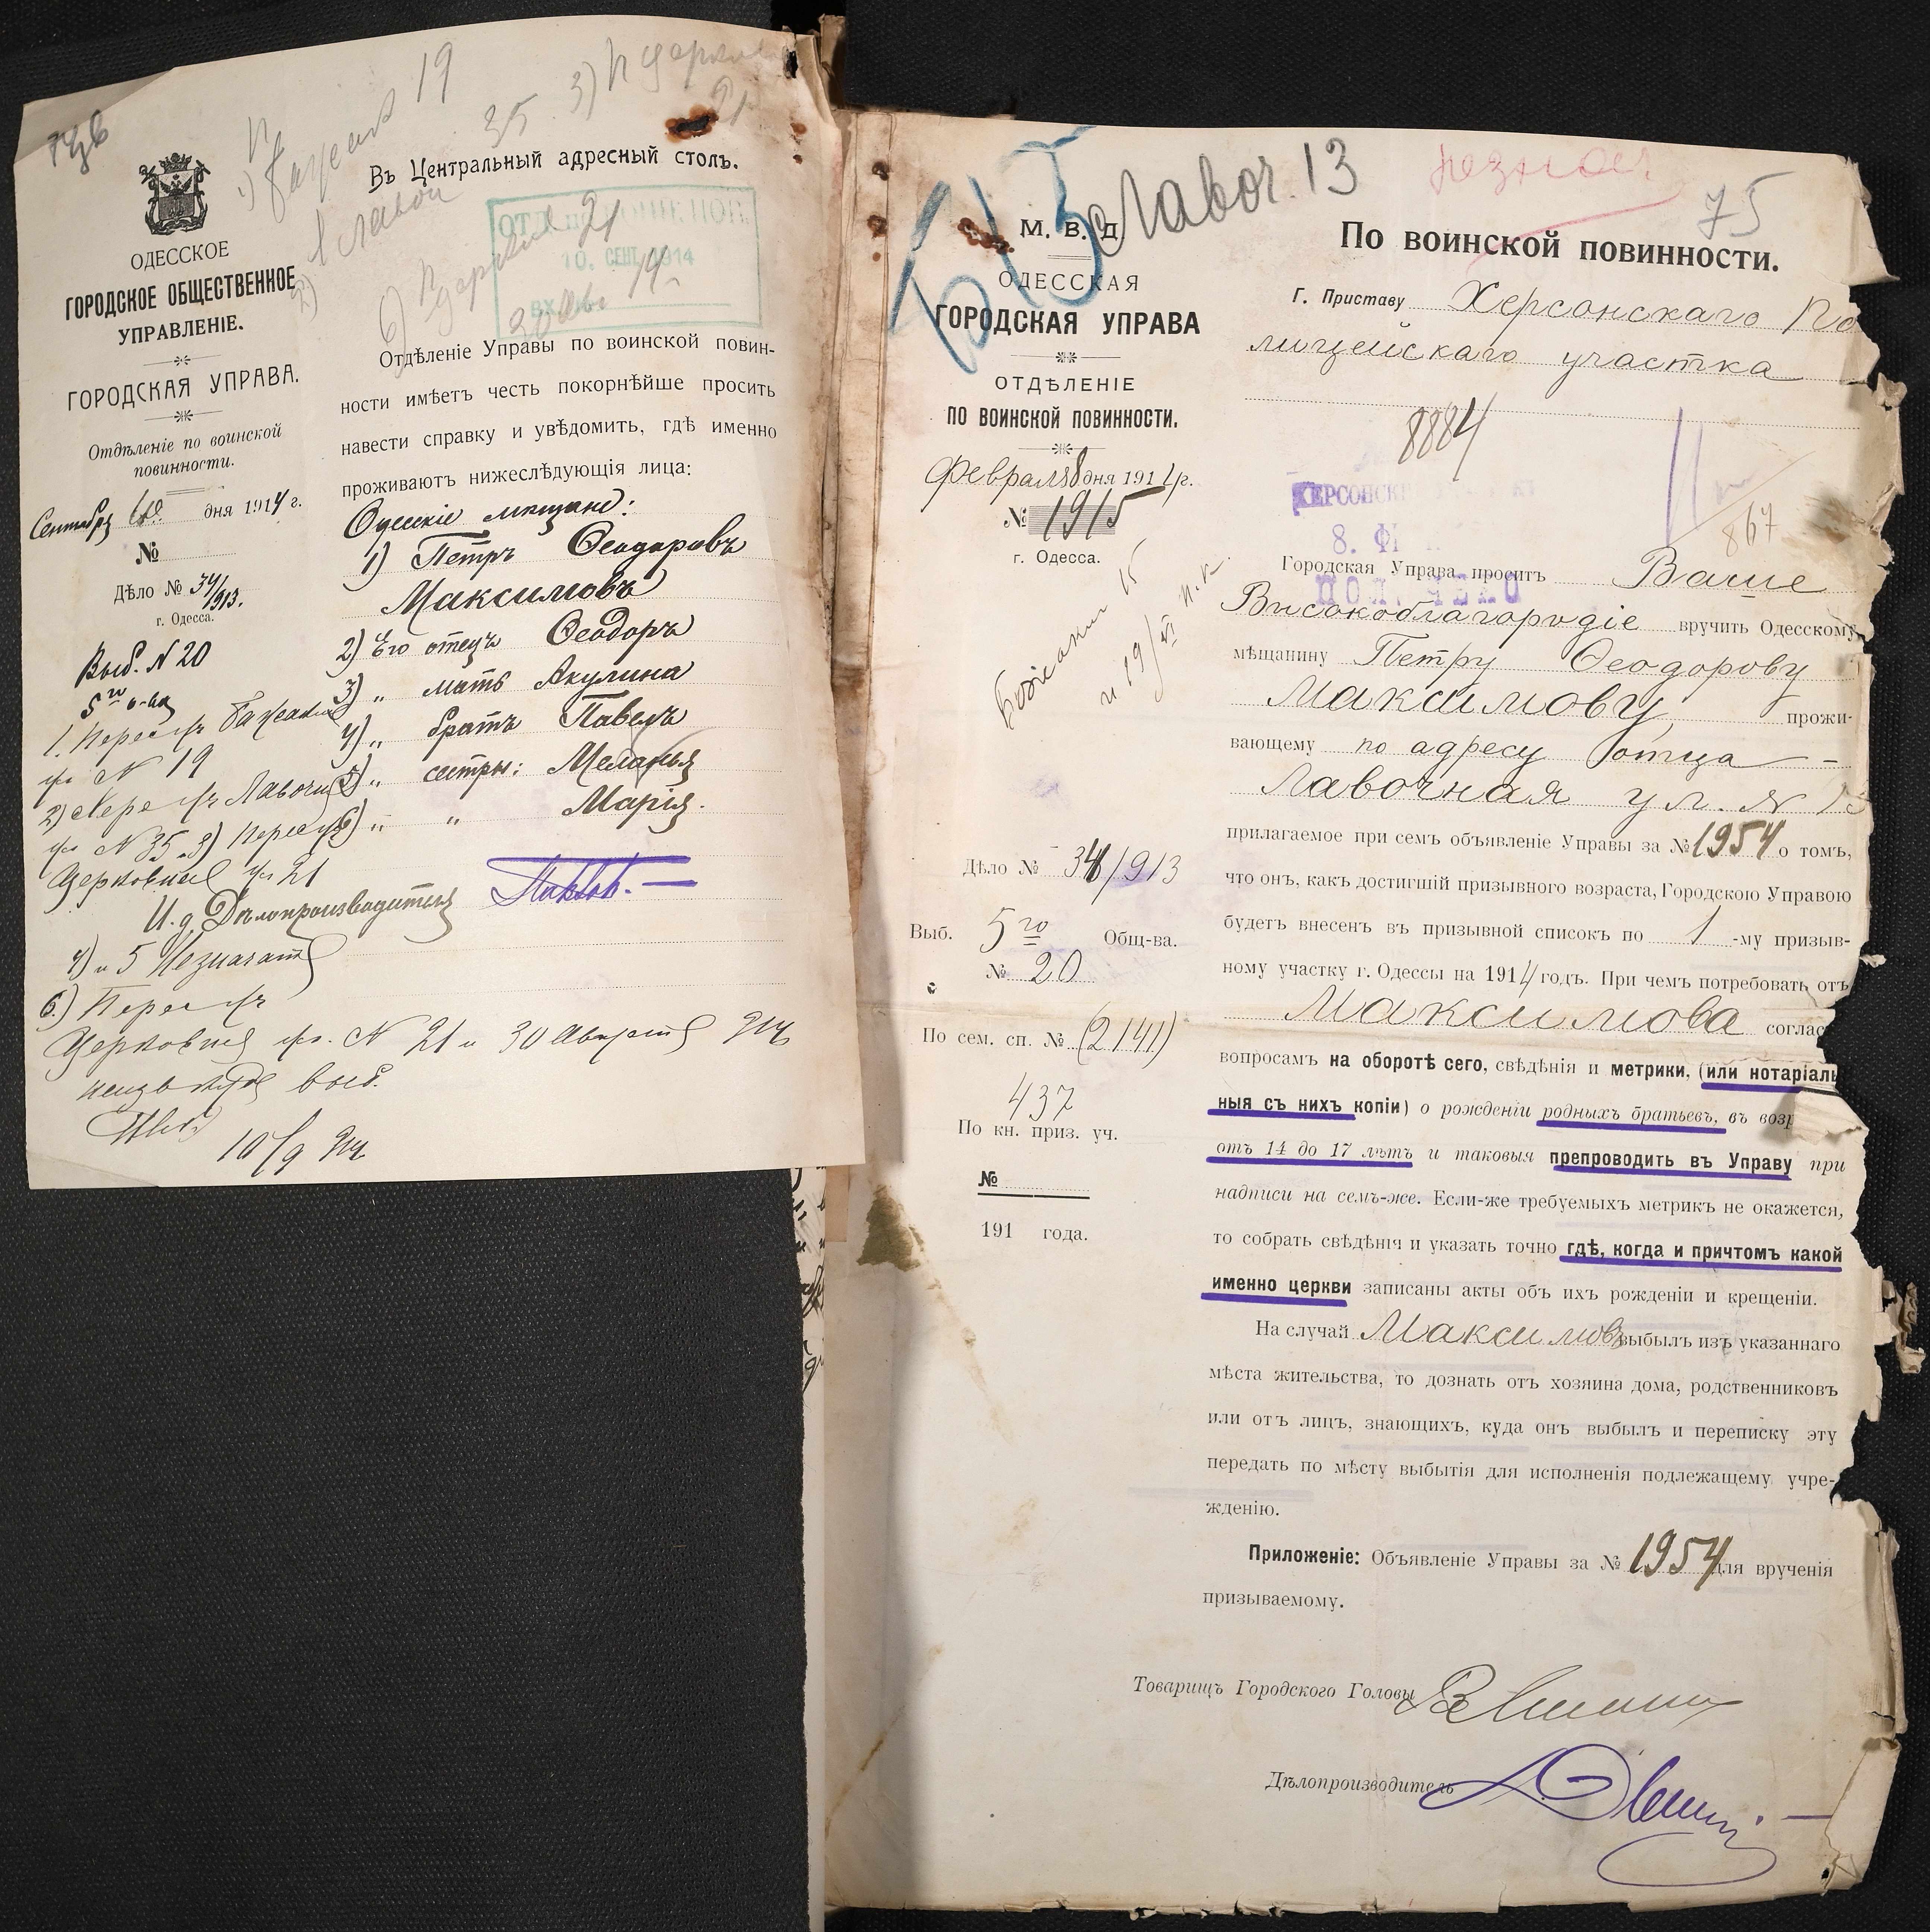 Въ Центральный адресный столъ.
ОДЕССКОЕ
ГОРОДСКОЕ ОБЩЕСТВЕННОЕ
УПРАВЛЕНІЕ.
ГОРОДСКАЯ УПРАВА.
Отдѣленіе по воинской
повинности.
Сентября 10 дня 1914 г.
№
Дѣло № 34/913.
г. Одесса.
Выб. № 20
5го о-ва
10. СЕНТ. 1914
Отдѣленіе Управы по воинской повин-
ности имѣетъ честь покорнѣйше просить
навести справку и увѣдомить, гдѣ именно
проживаютъ нижеслѣдующія лица:
Одесскіе мѣщане:
1) Петръ Ѳеодоровъ
Максимовъ
2) Его отецъ Ѳеодоръ
3) „ мать Акулина
4) „ братъ Павелъ
5) „ сестры: Меланья
6) „ „ Марія.
И. д. Дѣлопроизводителя
№ 19
2) Лавочная
№ 35 3)
Церковная ул 21
4) и 5 Не значатъ
6)
Церковная ул. № 21 и 30 Августа 914
неизвѣстно выб.
10/9 914
Лавоч. 13
75
М. В. Д.
ОДЕССКАЯ
ГОРОДСКАЯ УПРАВА
ОТДѢЛЕНІЕ
ПО ВОИНСКОЙ ПОВИННОСТИ.
Февраля 8 дня 1914 г.
№ 1915
г. Одесса.
Дѣло № 34/913
Выб. 5го Общ-ва.
№ 20
По сем. сп. № (2141)
437
По кн. приз. уч.
№
191 года.
По воинской повинности.
Г. Приставу Херсонскаго По
лицейскаго участка
8884
867
Городская Управа проситъ Ваше
Высокоблагородіе вручить Одесскому
мѣщанину Петру Ѳеодорову
Максимову, прожи-
вающему по адресу отца –
Лавочная ул. № 13
прилагаемое при семъ объявленіе Управы за № 1954 о томъ,
что онъ, какъ достигшій призывного возраста, Городскою Управою
будетъ внесенъ въ призывной списокъ по 1 -му призыв-
ному участку г. Одессы на 1914 годъ. При чемъ потребовать отъ
Максимова соглас
вопросамъ на оборотѣ сего, свѣдѣнія и метрики, (или нотаріаль
ныя съ нихъ копіи) о рожденіи родныхъ братьевъ, въ возр
отъ 14 до 17 лѣтъ и таковыя препроводить въ Управу при
надписи на семъ-же. Если-же требуемыхъ метрикъ не окажется,
то собрать свѣдѣнія и указать точно гдѣ, когда и причтомъ какой
именно церкви записаны акты объ ихъ рожденіи и крещеніи.
На случай Максимовъ выбылъ изъ указаннаго
мѣста жительства, то дознать отъ хозяина дома, родственниковъ
или отъ лицъ, знающихъ, куда онъ выбылъ и переписку эту
передать по мѣсту выбытія для исполненія подлежащему учре-
жденію.
Приложеніе: Объявленіе Управы за № 1954 для врученія
призываемому.
Товарищъ Городского Головы
Дѣлопроизводитель